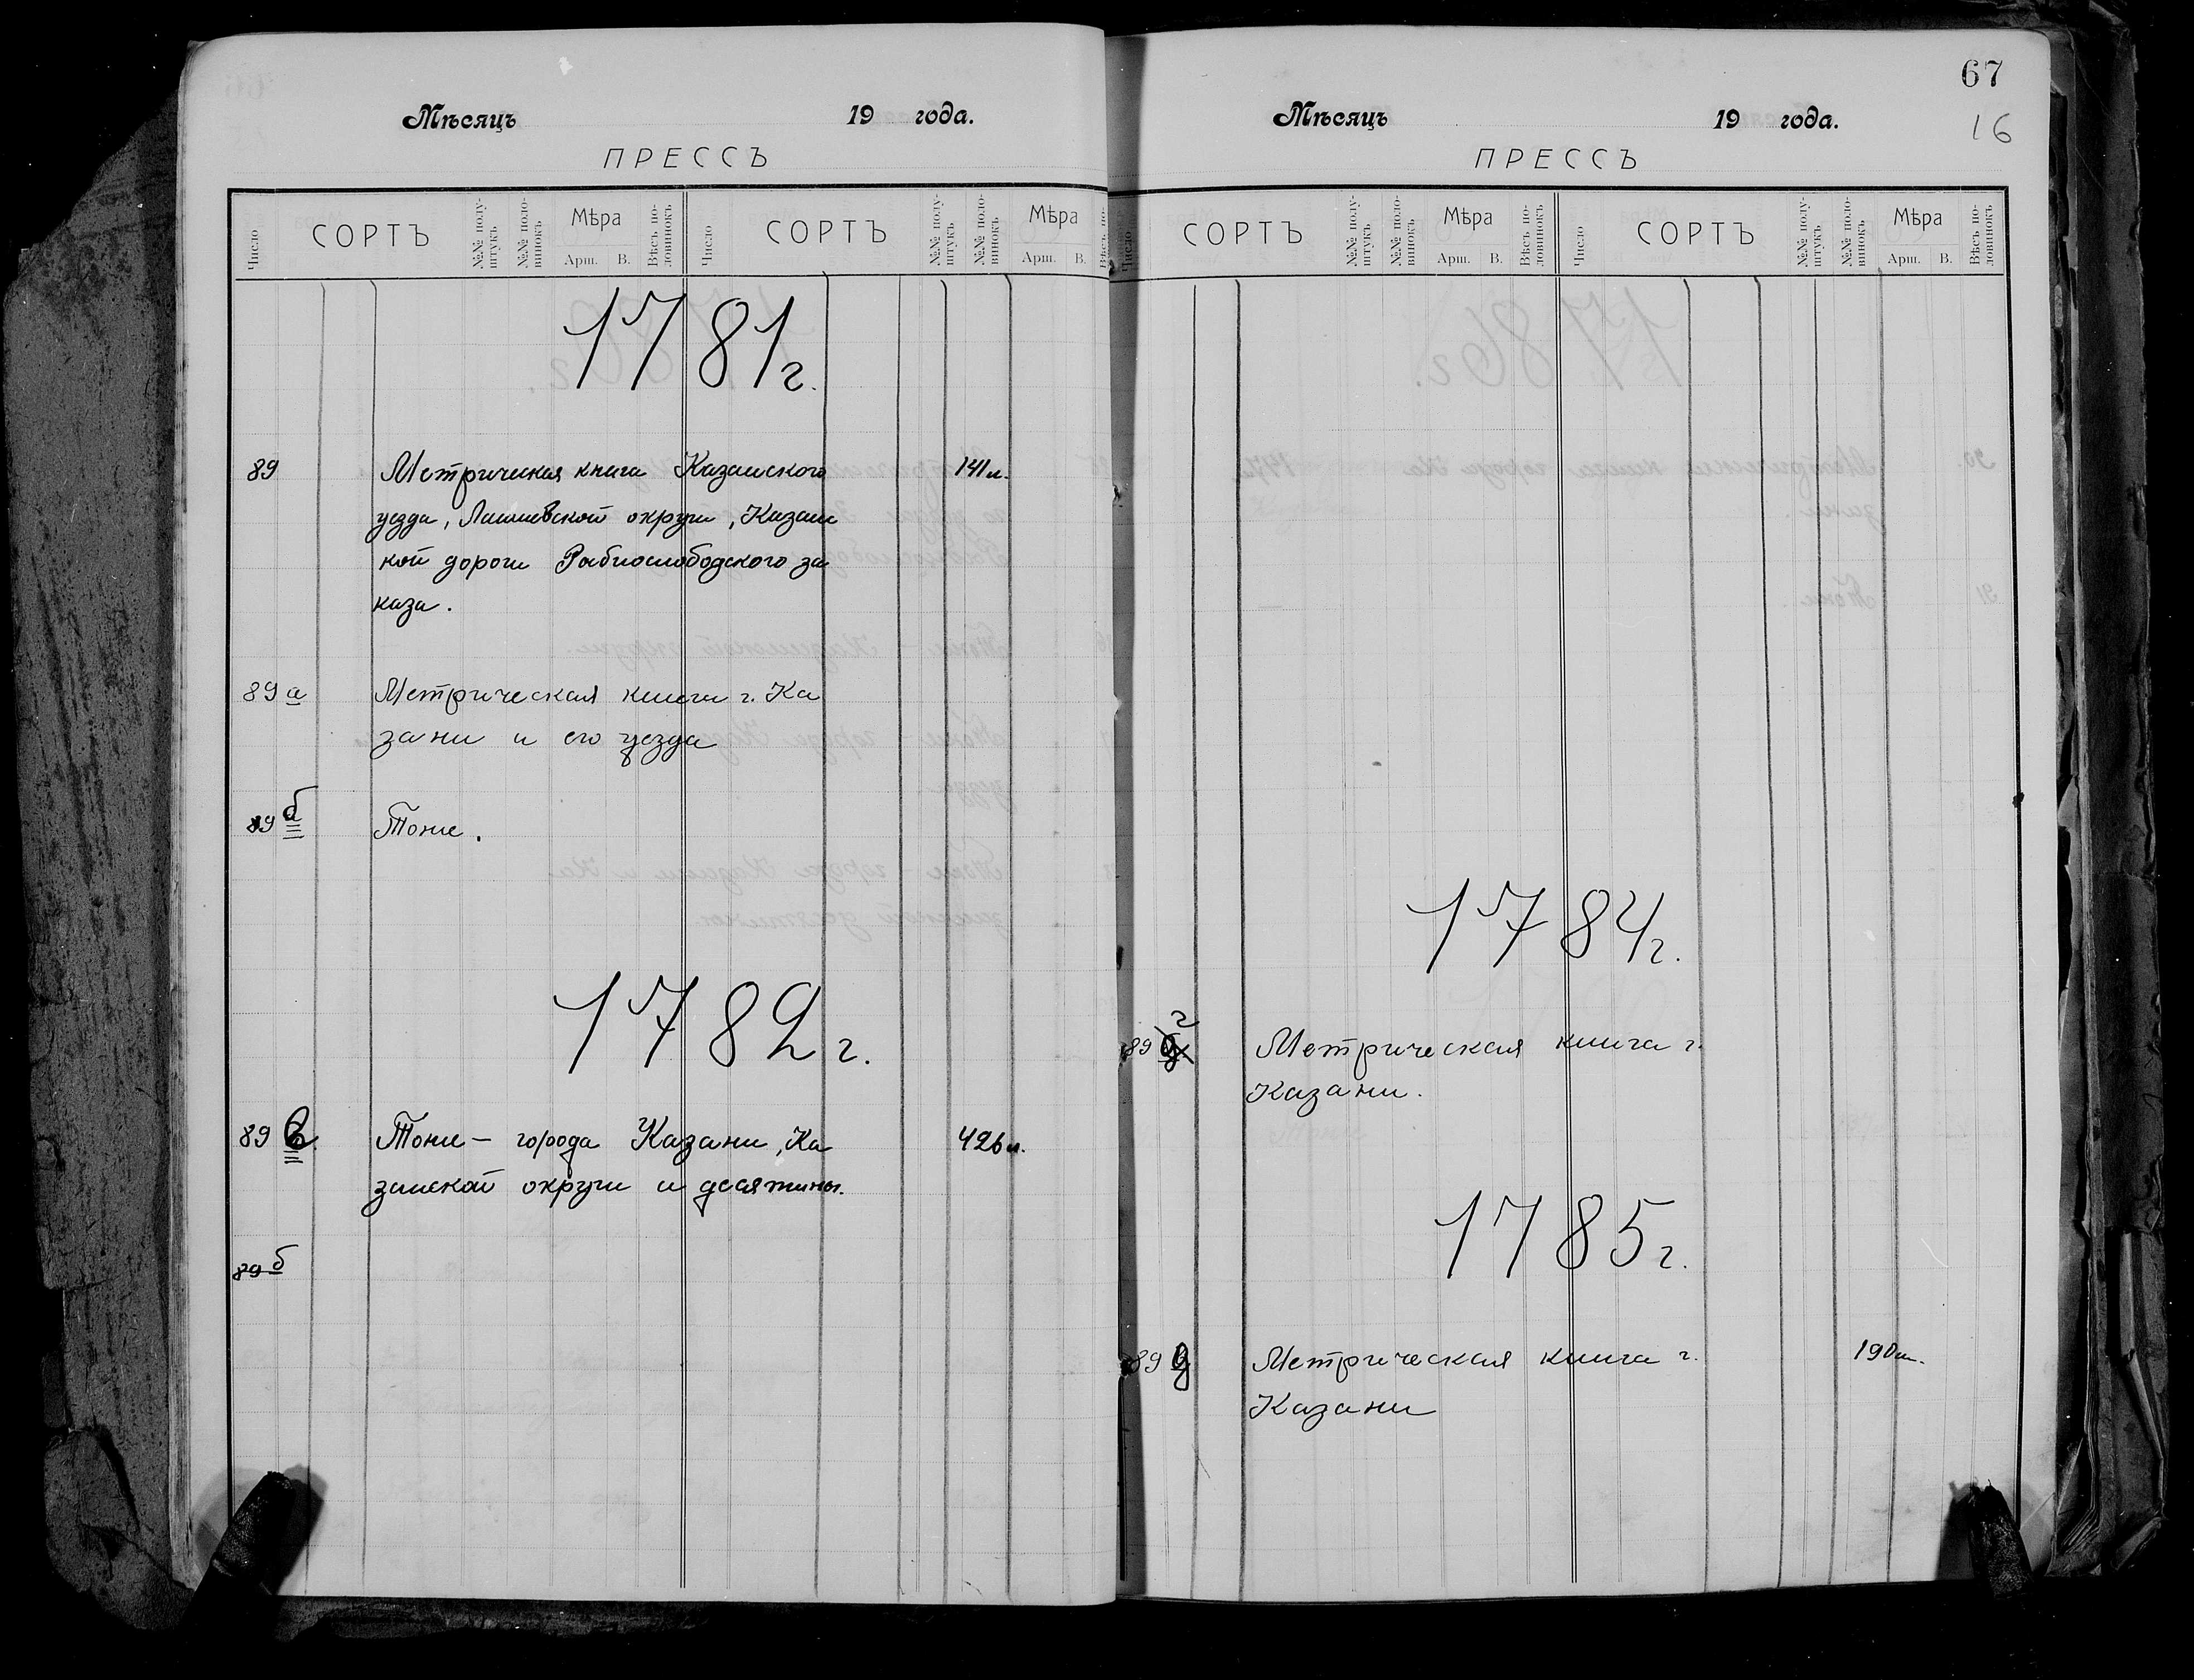 Мѣсяцъ 19 года.
ПРЕССЪ
Число СОРТЪ №№ полу-штукъ №№ поло-винокъ Мѣра Арш. В. Вѣсъ по-ловинокъ Число СОРТЪ №№ полу-штукъ №№ поло-винокъ Мѣра Арш. В. Вѣсъ по-
1781г.
89 Метрическая книга Казанского 141л.
уезда, Лаишевской округи, Казанс
кой дороги Рыбнослободского за
каза.
89а Метрическая книга г. Ка
зани и его уезда
89б Тоже.
1782г.
89в. Тоже – города Казани, Ка 426л.
занской округи и десятины.
89б
67
16
Мѣсяцъ 19 года.
ПРЕССЪ
Число СОРТЪ №№ полу-штукъ №№ поло-винокъ Мѣра Арш. В. Вѣсъ по-ловинокъ Число СОРТЪ №№ полу-штукъ №№ поло-винокъ Мѣра Арш. В. Вѣсъ по-ловинокъ
1784г.
89г Метрическая книга г.
Казани.
1785г.
89д Метрическая книга г. 190л.
Казани